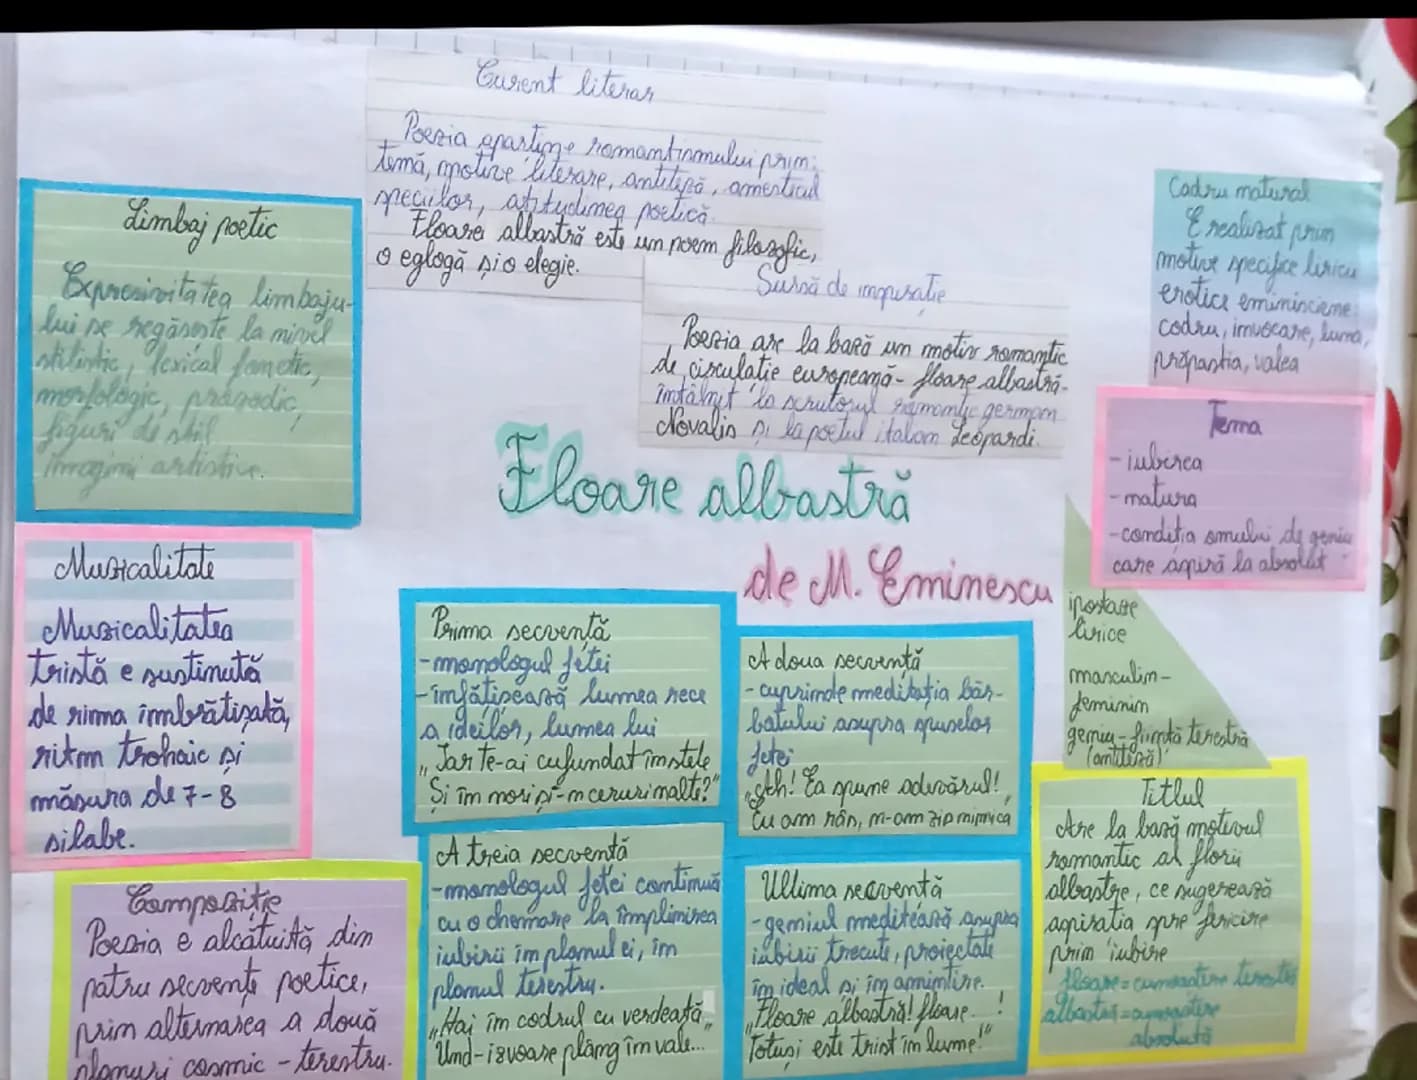 Curent literar
Poezia aparține romantismului prin:
temă, motive literare, antiteză, amestecul
speciilor, atitudinea poetică.
Floarea albastră este un poem filozofic,
o eglogă și o elegie.
Sursă de inspirație
Poezia are la bază un motiv romantic
de circulație europeană - floare albastră -
întâlnit la scriitorul romantic german
Novalis și la poetul italian Leopardi.
Limbaj poetic
Expresivitatea limbaju-
lui se regăsește la nivel
stilistic, lexical fonetic,
morfologic, prozodic,
figuri de stil
imagini artistice.
Cadru natural
E realizat prin
motive specifice liricii
erotice eminisciene:
codru, invocare, luna,
prăpastia, valea
Tema
- iubirea
- natura
- condiția omului de geniu
care aspiră la absolut
Floare albastră
de M. Eminescu
Musicalitate
Musicalitatea
tristă e susținută
de rima îmbrățișată,
ritm trohaic și
măsura de 7-8
silabe.
Prima secvență
- monologul fetei
- înfățișează lumea rece
a ideilor, lumea lui
„Iar te-ai cufundat în stele
Și în nori și-n ceruri nalte?"
A doua secvență
- cuprinde meditația băr-
batului asupra spuselor
fetei
„Ah! Ea spune adevărul!
Eu am râs, n-am zis nimica
ipostaze
lirice
masculin -
feminin
geniu - ființă terestră
(antiteză)
Titlul
Are la bază motivul
romantic al florii
albastre, ce sugerează
aspirația spre fericire
prin iubire
floare = cunoaștere terestră
albastră = cunoaștere
absolută
Compoziție
Poezia e alcătuită din
patru secvențe poetice,
prin alternarea a două
planuri cosmic - terestru.
A treia secvență
- monologul fetei continuă
cu o chemare la împlinirea
iubirii în planul ei, în
planul terestru.
„Hai în codrul cu verdeață,
Und-izvoare plâng în vale...
Ultima secvență
- geniul meditează asupra
iubirii trecute, proiectate
în ideal și în amintire.
„Floare albastră! floare... !
Totuși este trist în lume!"